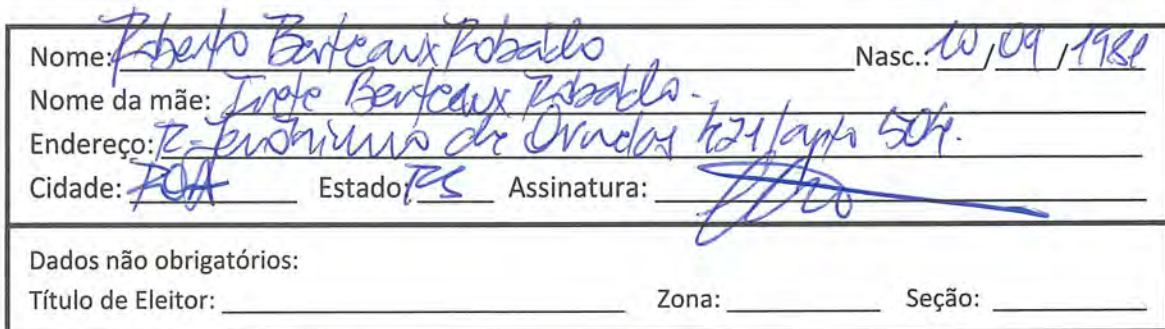 Nome: Roberto Berteaux Robaldo Nasc.: 10/09/1981
Nome da mãe: Ivete Berteaux Robaldo.
Endereço: R. Jerônimo de Ornelas 421/apto 504.
Cidade: POA Estado: RS Assinatura:
Dados não obrigatórios:
Título de Eleitor: Zona: Seção: